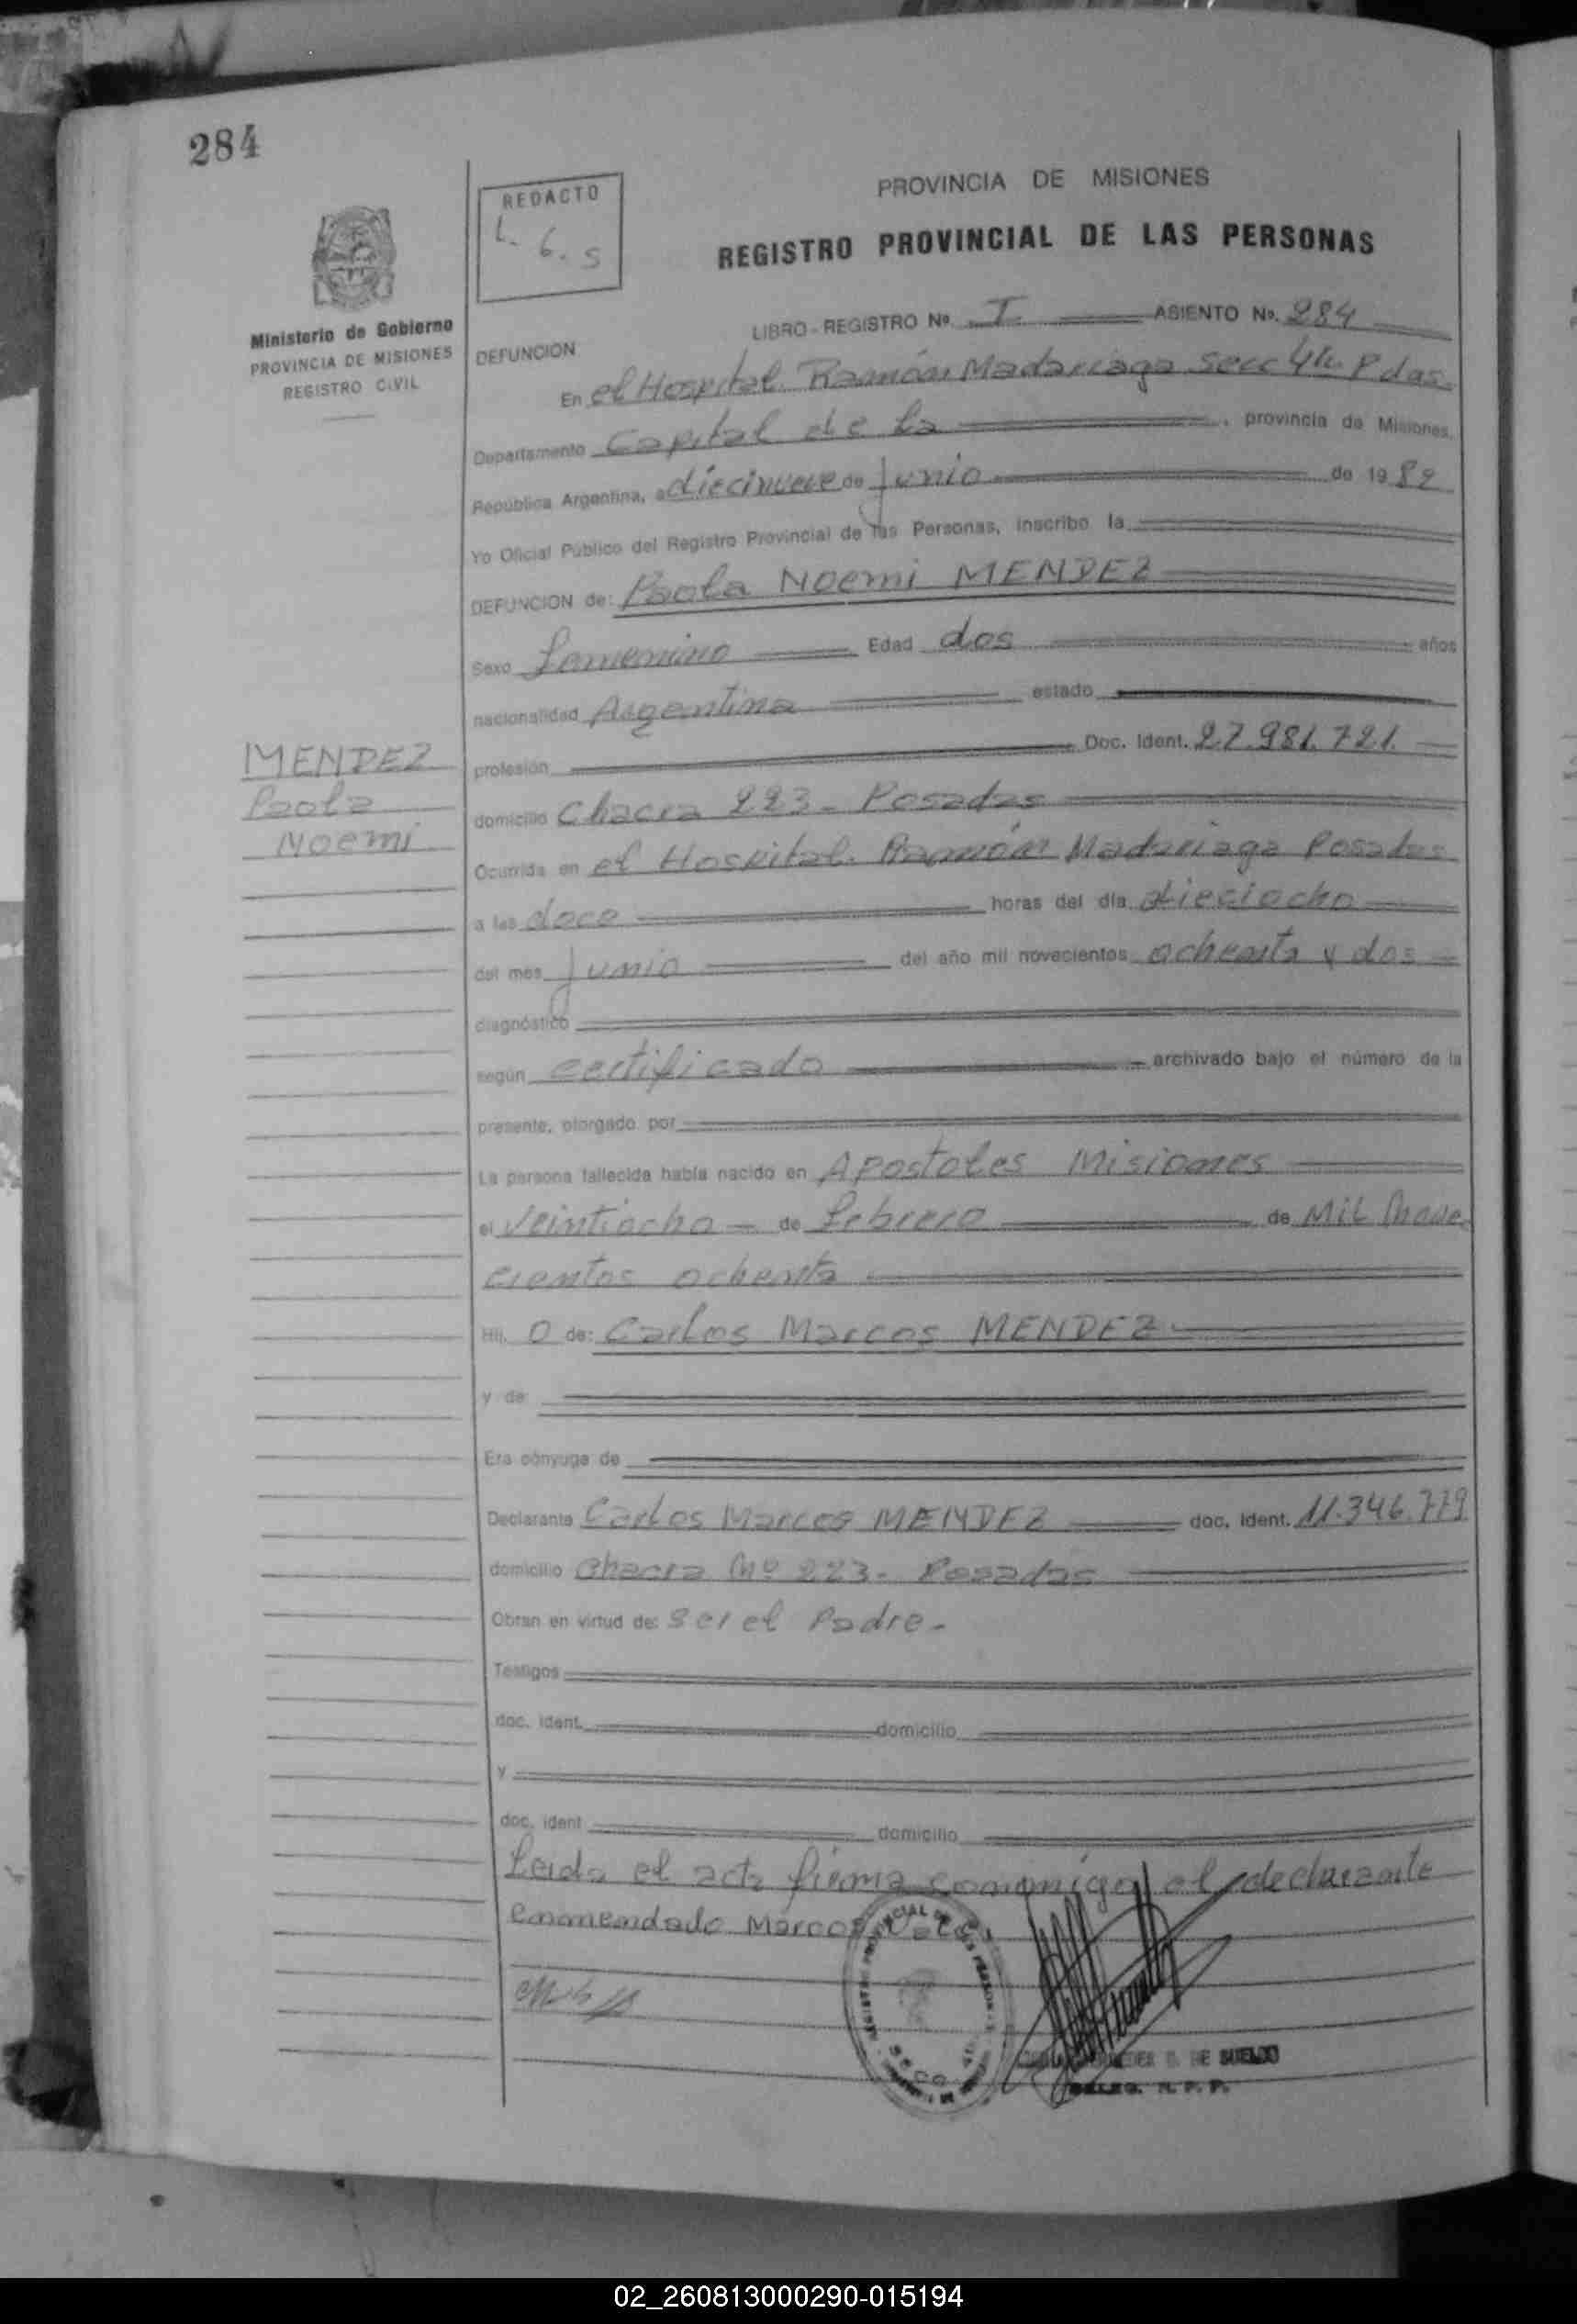 284
REDACTO
L. G. S
PROVINCIA DE MISIONES
REGISTRO PROVINCIAL DE LAS PERSONAS
Ministerio de Gobierno
PROVINCIA DE MISIONES
REGISTRO CIVIL
LIBRO - REGISTRO Nº. I ASIENTO No. 284
DEFUNCION
En el Hospital Ramón Madariaga Secc 4ta. Pdas.
Departamento Capital de la , provincia de Misiones,
República Argentina, a diecinueve de Junio de 1982
Yo Oficial Público del Registro Provincial de las Personas, inscribo la
DEFUNCION de: Paola Noemi MENDEZ
Sexo femenino Edad dos años
nacionalidad Argentina estado
profesión Doc. Ident. 27.981.721.
MENDEZ
Paola
Noemi
domicilio Chacra 223 - Posadas
Ocurrida en el Hospital Ramón Madariaga Posadas
a las doce horas del día dieciocho
del mes Junio del año mil novecientos ochenta y dos
diagnóstico
según certificado archivado bajo el número de la
presente, otorgado por
La persona fallecida había nacido en Apostoles Misiones
el veintiocho de febrero de Mil nove
cientos ochenta
Hij. o de: Carlos Marcos MENDEZ
y de
Era cónyuge de
Declarante Carlos Marcos MENDEZ doc. ident. 11.346.779
domicilio Chacra Nº 223 - Posadas
Obran en virtud de: Ser el Padre -
Testigos
doc. ident. domicilio
y
doc. ident domicilio
Leida el acta firma conmigo el declarante
enmendado Marcos Vale
DE SUELDO
DELEG. R. P. P.
02_260813000290-015194